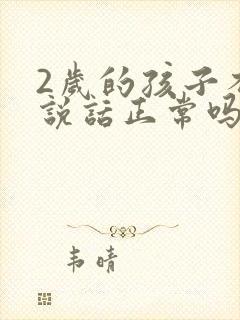 2歲的孩子
說話正常吗
韦晴